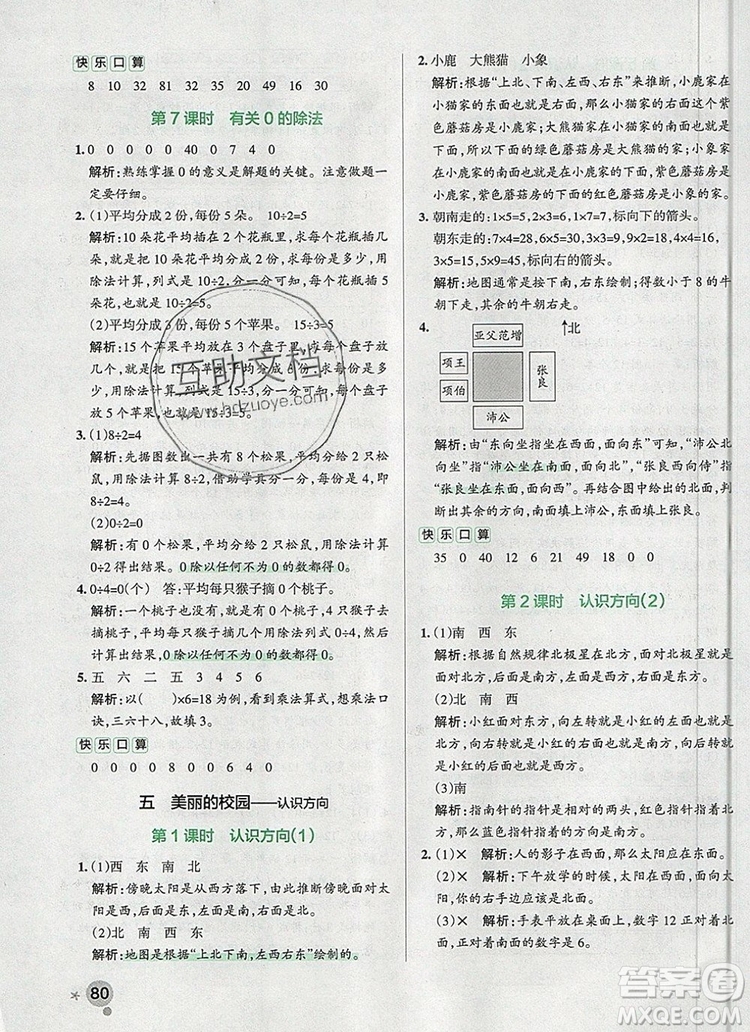 快乐口算
8 10 32 81 32 35 20 49 16 30
第7课时 有关0的除法
1. 0 0 0 0 0 40 0 7 4 0
解析:熟练掌握0的意义是解题的关键。注意做题一
定要仔细。
2. (1)平均分成2份,每份5朵。 10÷2=5
解析:10朵花平均插在2个花瓶里,求每个花瓶插几
朵,就是把10朵花平均分成2份,求每份是多少,用
除法计算,列式是10÷2,先分一分,每个花瓶插5
朵花,也就是10÷2=5。
(2)平均分成3份,每份5个苹果。 15÷3=5
解析:15个苹果平均放在3个盘子里,求每个盘子放
几个,就是把15平均分成3份,求每份是多少,用除
法计算,列式是15÷3,先分一分,每个盘子
放5个苹果,也就是15÷3=5。
3. (1)8÷2=4
解析:先据图数出一共有8个松果,平均分给2只松
鼠,求每只松鼠分几个,就是把8平均分成2份,用
除法计算8÷2。借助学具分一分,每只分4个,即
8÷2=4。
(2)0÷2=0
解析:有0个松果,平均分给2只松鼠,用除法计算
0÷2,结果是0。0除以任何不为0的数都得0。
4. 0÷4=0(个) 答:平均每只猴子摘0个桃子。
解析:一个桃子也没有,就是有0个桃子,平均分给4
只猴子,求平均每只猴子摘几个用除法计算0÷4,然
后计算结果,0除以任何不为0的数都得0。
5. 五 六 二 二 五 三
解析:以( )×6=18为例,看到乘法算式,想乘法口
诀,三六十八,故填3。
快乐口算
0 0 0 0 8 0 0 6 4 0
五 美丽的校园——认识方向
第1课时 认识方向(1)
1. (1)西 东 南 北
解析:傍晚太阳是从西方落下,由此推断面对太
阳,前面是西,后面是东,左面是南,右面是北。
(2)北 南 西 东
解析:地图是根据“上北下南,左西右东”绘制的。
80
2. 小鹿 大熊猫 小象
解析:根据“上北、下南、左西、右东”来推断,小鹿家在
小猫家的东面,那么小猫家的东面这个紫
色蘑菇房是小鹿家;大熊猫家在小猫家的南面,小猫
家下面的绿色蘑菇房是大熊猫家;小象家在小
鹿家的北面,紫色蘑菇房的下面的红色蘑菇房为小象家。
3. 朝南走的:1×5=5,2×3=6,1×7=7,标向下的箭头。
朝东走的:7×4=28,9×2=18,8×6=48,4×3=12,
3×5=15,5×9=45,标向右的箭头。
解析:地图通常是按下南,右东绘制;得数小于8的牛
朝南走,得数大于8的牛朝右走。
4. 亚父范增 ↑北
项王
项伯
张良
沛公
解析:由“东向坐指坐在西面,面向东”可知,“沛公北
向坐”指“沛公坐在南面,面向北”,“张良西向侍”指
“张良坐在东面,面向西”。再结合题图中给出的北面
先判断出其余的方向,南面填上沛公,东面填上张良。
快乐口算
35 0 40 12 6 21 49 18 0 0
第2课时 认识方向(2)
1. (1)南 西 东
解析:根据自然规律北极星在北方,面对北极星就是
面对北方,则后面是南方,左面是西方,右面是东方。
(2)北 南 西
解析:小红面对东方,向左转就是小红的左面是北
方,向右转就是小红的右面是南方,向后转就是小
红的后面是西方。
(3)南
解析:指南针的指针是相对的两头,红色指着北方,
那么蓝色就指着南方。
2. (1)× 解析:人的影子在西面,那么太阳应在东面。
(2)× 解析:下午放学的时候,太阳在西面,面对太
阳,你的右手边应该是北面。
(3)× 解析:手表平放在桌面,数字12正对的方向
是北面,那么正对南面的数字应该是6。
互助文档
www.hdzuoye.com
答案圈
MXQE.COM